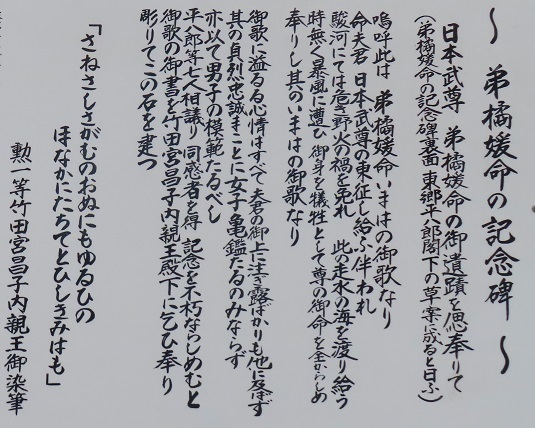 ～ 弟橘媛命の記念碑 ～
日本武尊 弟橘媛命の御遺蹟を偲奉りて
(弟橘媛命の記念碑裏面 東郷平八郎閣下の草案に成ると曰ふ)
嗚呼此は 弟橘媛命いまはの御歌なり
命夫君 日本武尊の東征し給ふ伴われ
駿河にては危き野火の禍を免れ 此の走水の海を渡り給う
時無く暴風に遭ひ 御身を犠牲として尊の御命を全からしめ
奉りし其のいまはの御歌なり
御歌に溢るる心情はすべて 夫君の御上に注ぎ露ばかりも他に及ばず
其の貞烈忠誠まことに女子亀鑑たるのみならず
亦以て男子の模範たるべし
平八郎等七人相議り 同感者を得 記念を不朽ならしめむと
御歌の御書を竹田宮昌子内親王殿下に乞ひ奉り
彫りてこの石を建つ
「さねさしさがむのおぬにもゆるひの
ほなかにたちてとひしきみはも」
勲一等竹田宮昌子内親王御染筆